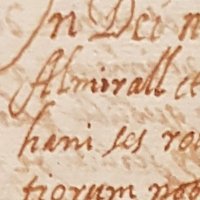 In Dei n
Almirall et
hani ses ro
tiorum nob